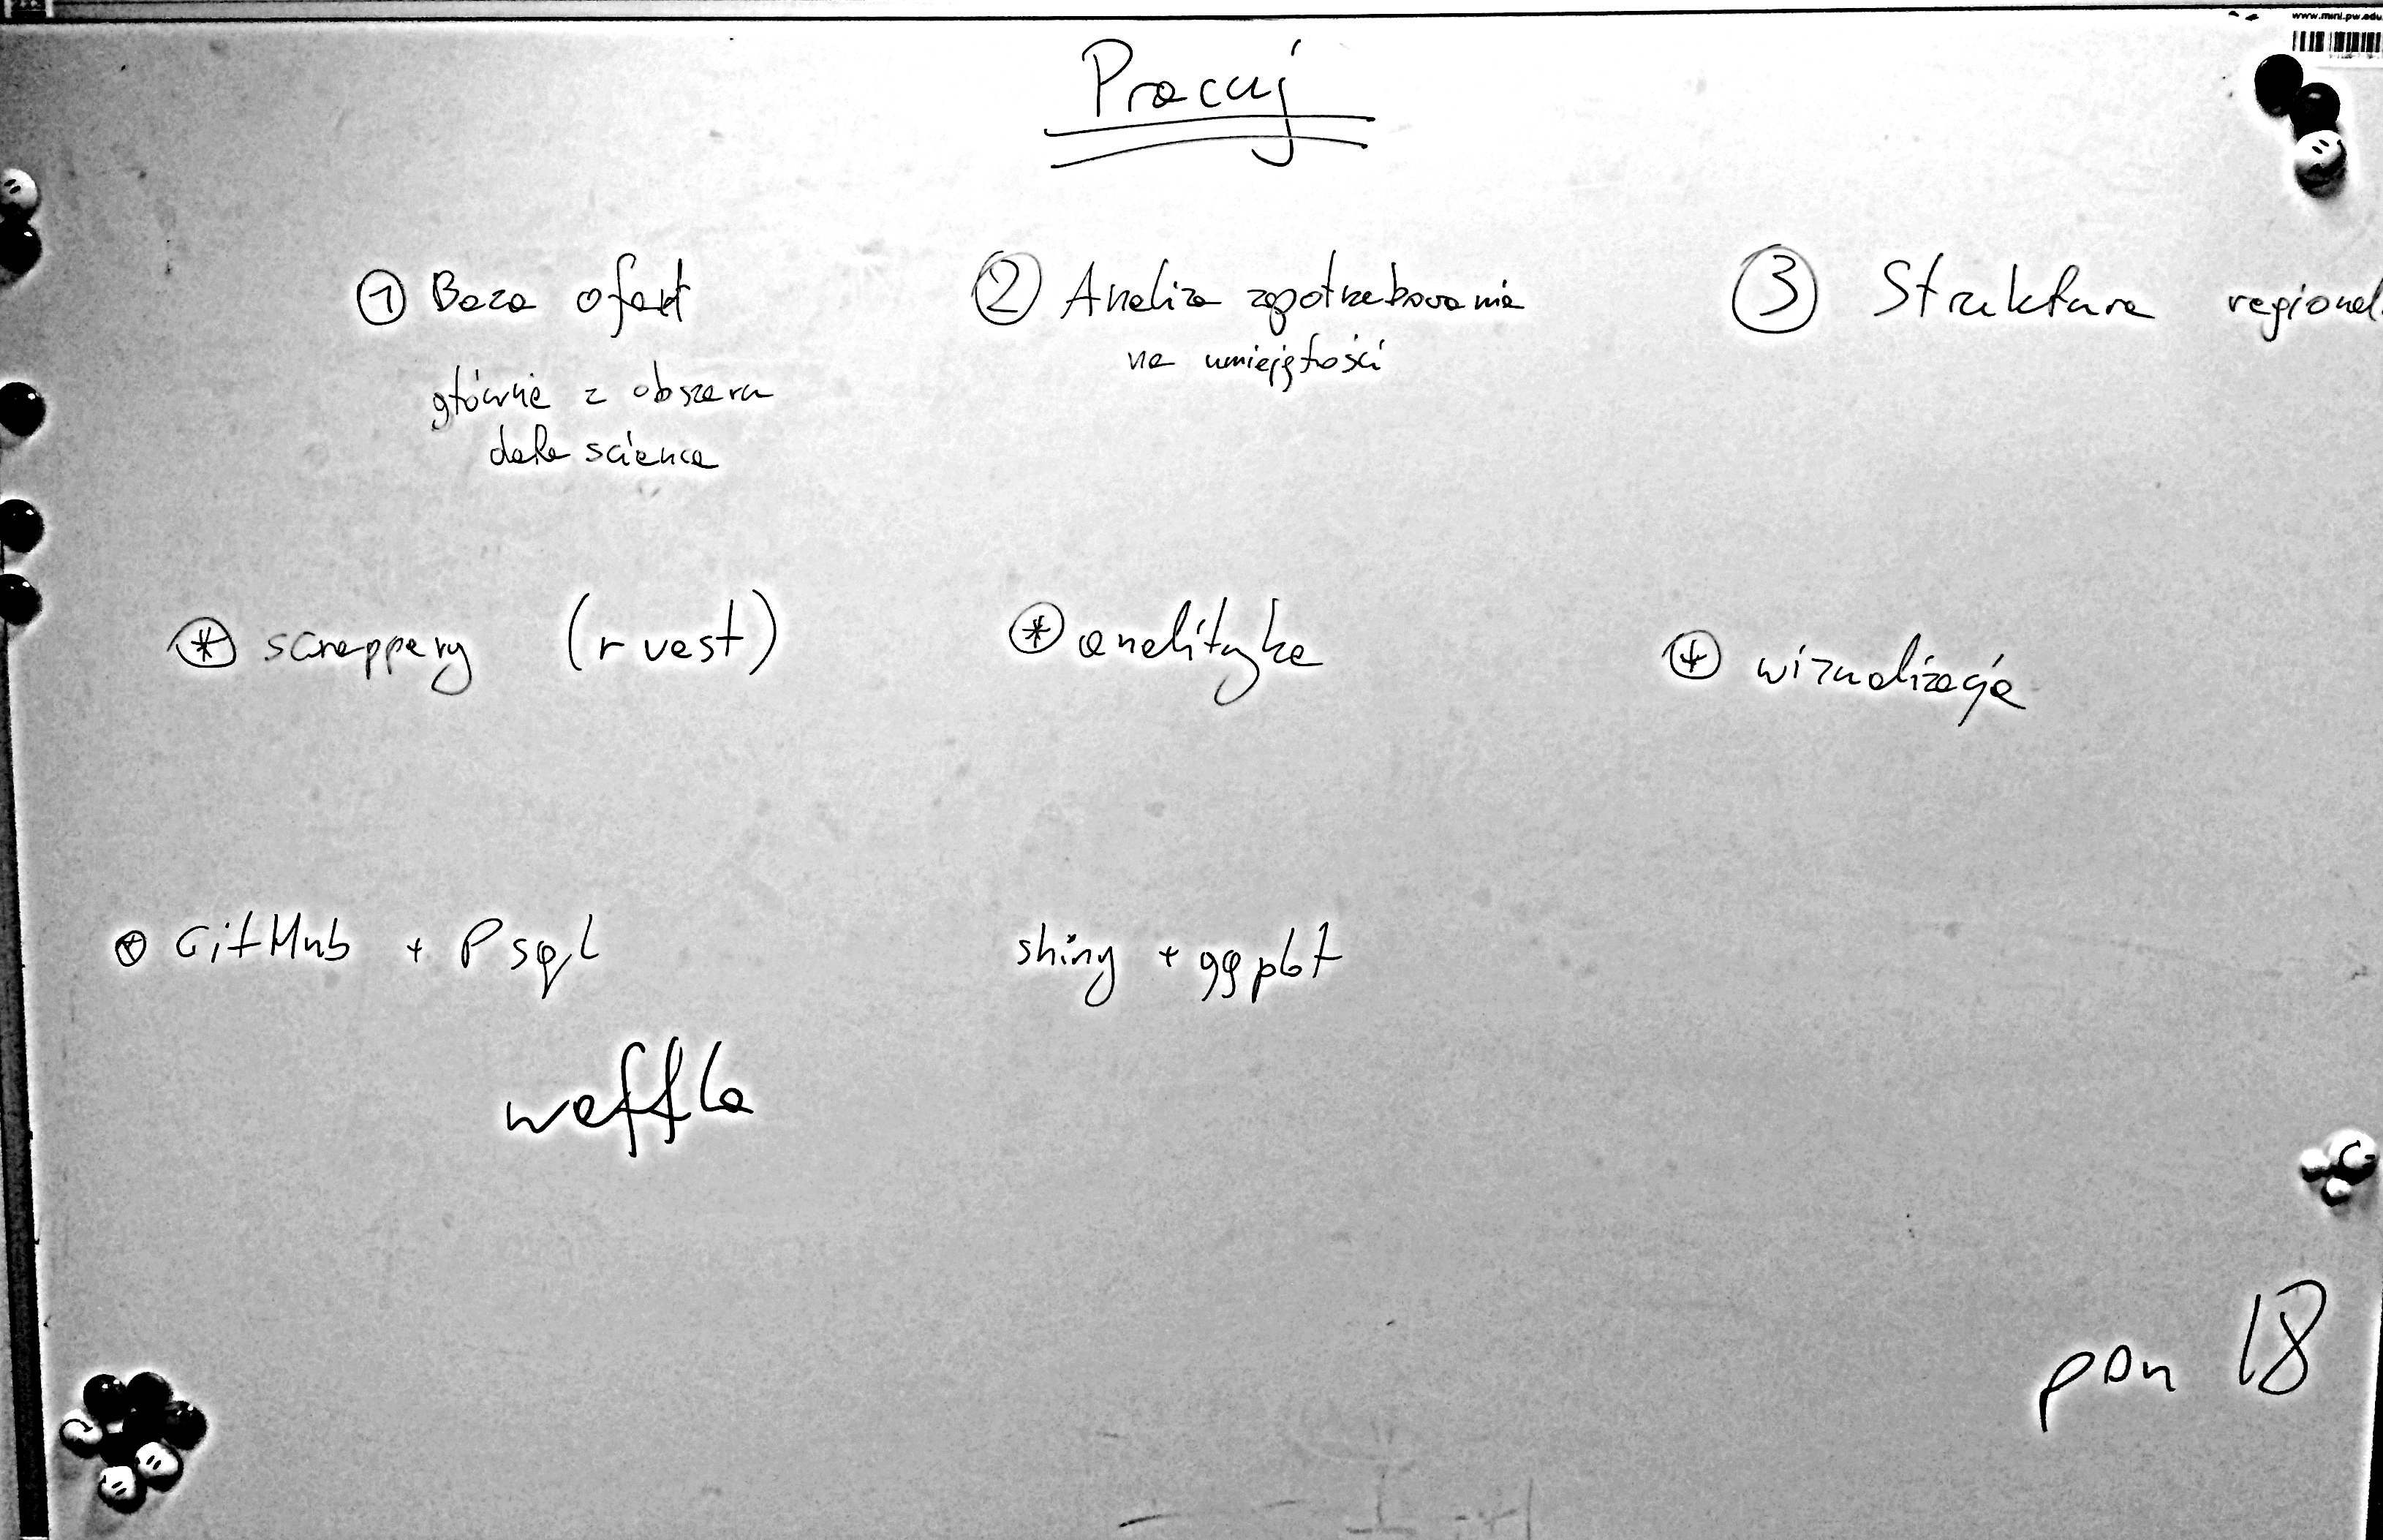 www.mini.pw.edu
Pracuj
① Baza ofert
głównie z obszaru
data science
② Analiza zapotrzebowania
na umiejętności
③ Struktura regional
* scrappery (rvest)
* analityka
* wizualizacja
* GitHub + Psql
shiny + ggplot
waffle
pon 18